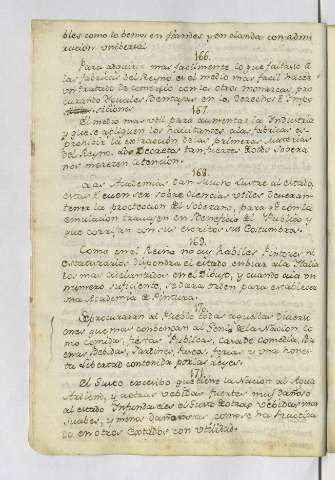 bles como lo bemos en flandes y en olanda con admi
racion unibersal
166.
Para adquirir mas facilmente lo que faltare a
las fabricas del Reyno es el medio mas facil hacer
un tratado de comercio con los otros monarcas, pro
curando yguales bentajas en los derechos é impo
siciones.
167.
El medio mas util para aumentar la Industria
y que se apliquen los havitantes alas fabricas es
prohibir la extraccion de las primeras materias
del Reyno, los Decretos tan fuertes sobera
nos merecen atencion.
168.
Las Academias dan mucho lustre al estado,
estas deven ser sobre ciencias utiles, deveran
tener la proteccion del Soberano, para que con la
emulacion travajen en Beneficio del Publico y
que corrijan con sus escritos sus Costumbres.
169.
Como en el Reyno no ay habiles Pintores ni
Estatuarios dispondra el estado enbiar ala Italia
los mas adelantados en el Dibujo, y quando aia un
numero suficiente, se dara orden para establecer
una Academia de Pintura.
170.
Se procuraran al Pueblo todas aquellas diversi
ones que mas combengan al Genio de la Nacion, co
mo comidas, fiestas Publicas, casas de comedia, Bu
enas Bebidas, Jardines, Juegos, ferias, y una hones
ta libertad contenida por las leyes.
171.
El Gusto excesibo que tiene la Nacion al Agua
Ardiente, y otras bebidas fuertes muy dañoso
al estado Infundaseles el Gusto de otras bebidas mas
suabes, y menos dañosas como se ha practica
do en otros Estados con utilidad.